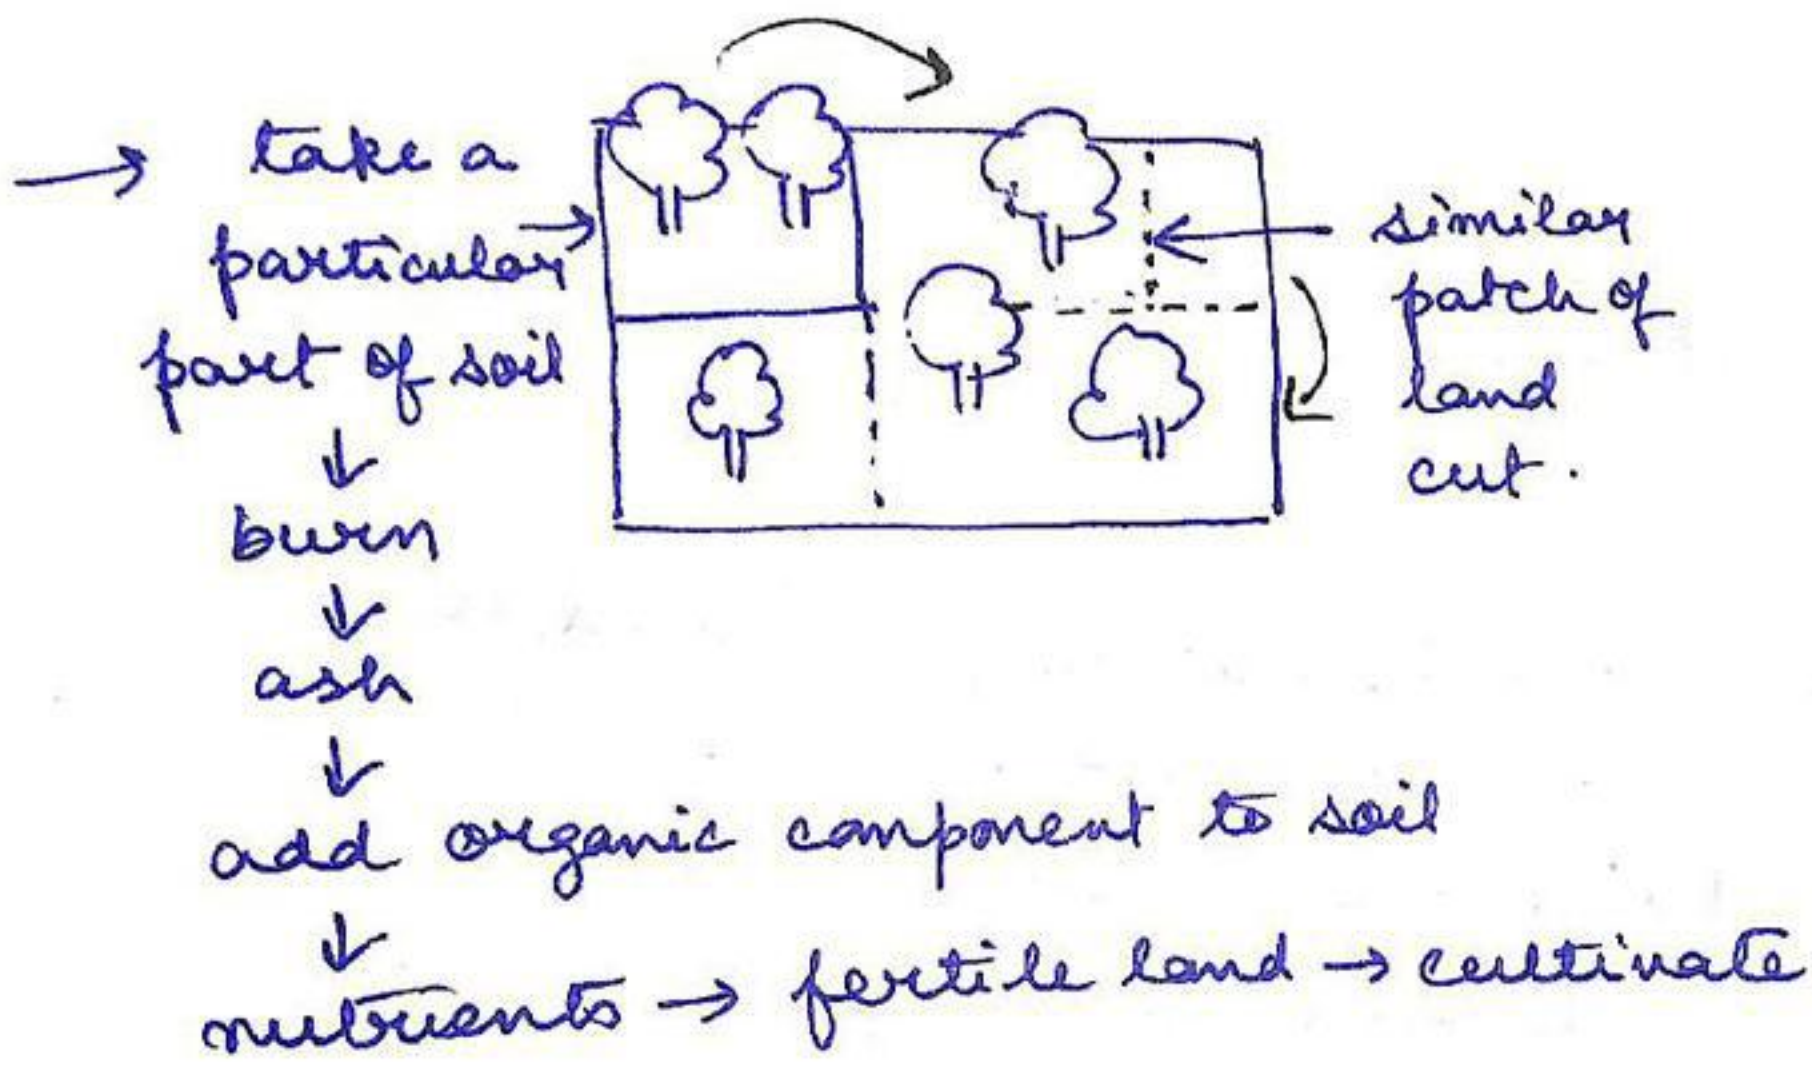 → take a
particular →
part of soil
↓
burn
↓
ash
↓
add organic component to soil
↓
nutrients → fertile land → cultivate
similar
patch of
land
cut.